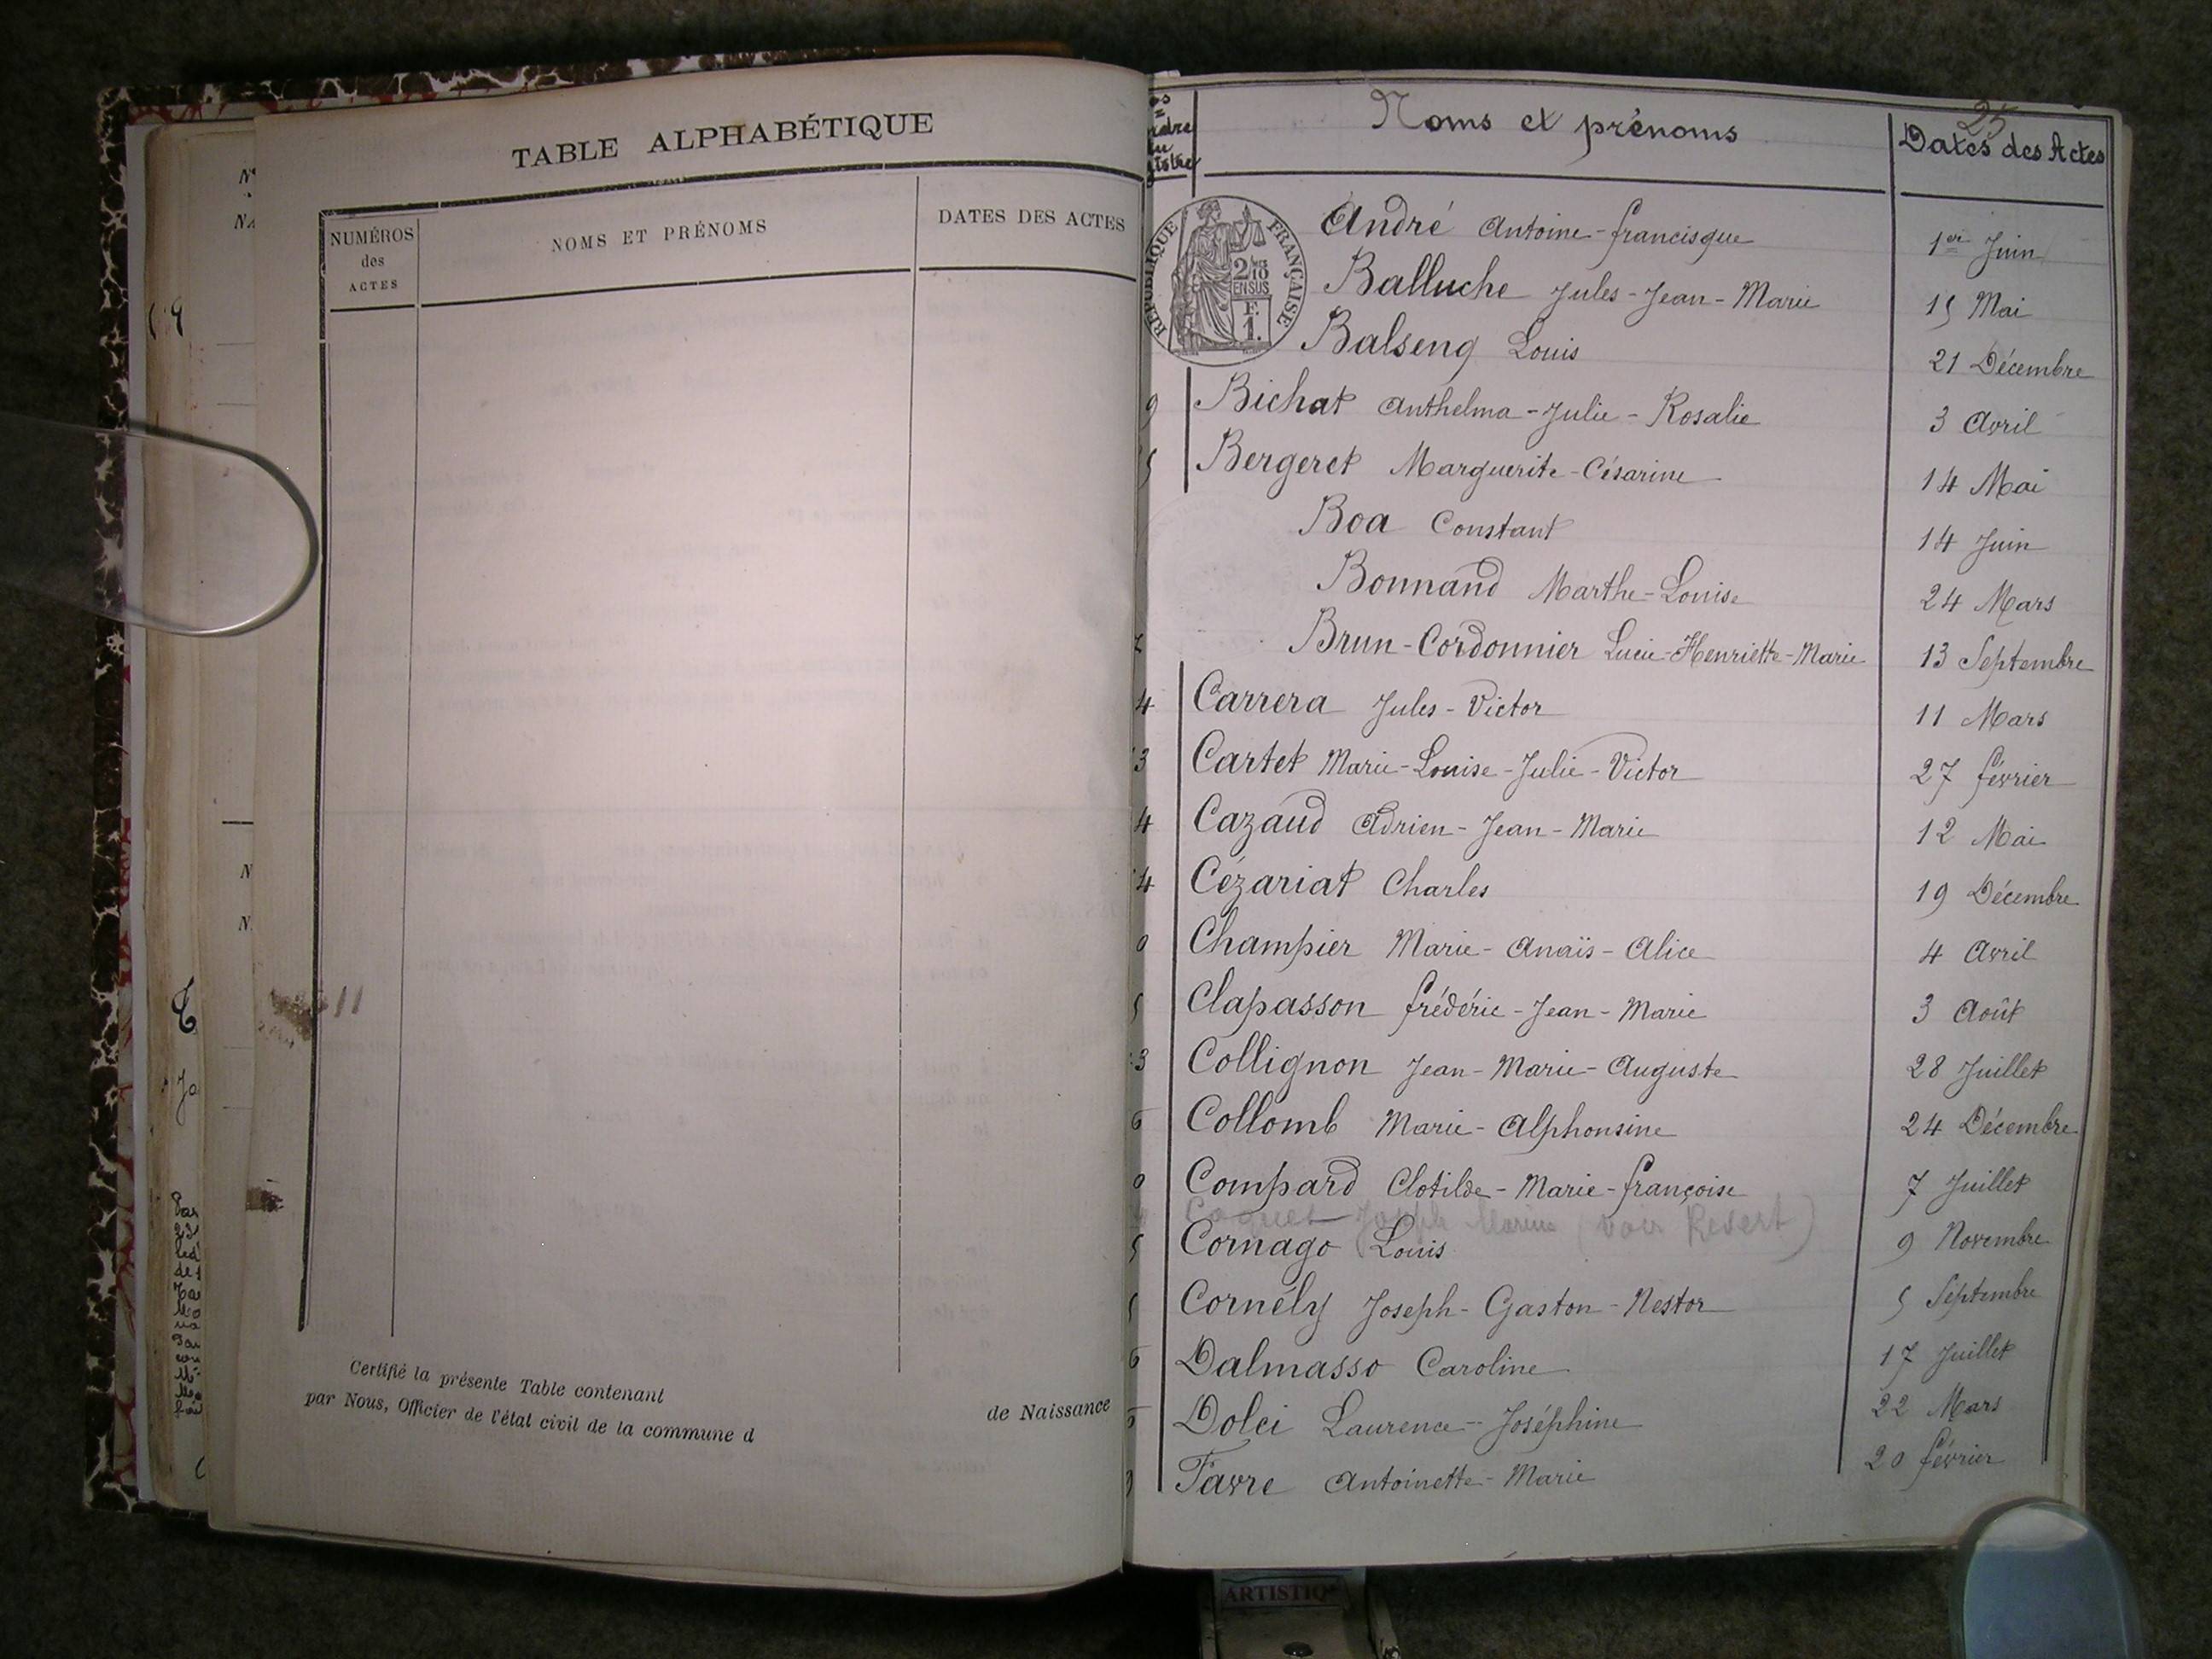 TABLE ALPHABÉTIQUE
NUMÉROS
des
ACTES
NOMS ET PRÉNOMS
DATES DES ACTES
Certifié la présente Table contenant
de Naissance
par Nous, Officier de l'état civil de la commune d
25
Noms et prénoms
Dates des Actes
RÉPUBLIQUE FRANÇAISE
2/10
EN SUS
F.
1.
André Antoine-Francisque 1er Juin
Balluche Jules-Jean-Marie 15 Mai
Balseng Louis 21 Décembre
9 Bichat Anthelma-Julie-Rosalie 3 Avril
5 Bergeret Marguerite-Césarine 14 Mai
Boa Constant 14 Juin
Bonnand Marthe-Louise 24 Mars
Brun-Cordonnier Lucie-Henriette-Marie 13 Septembre
4 Carrera Jules-Victor 11 Mars
3 Cartet Marie-Louise-Julie-Victor 27 février
4 Cazaud Adrien-Jean-Marie 12 Mai
4 Cézariat Charles 19 Décembre
0 Champier Marie-Anaïs-Alice 4 Avril
5 Clapasson frédéric-Jean-Marie 3 Août
3 Collignon Jean-Marie-Auguste 28 Juillet
6 Collomb Marie-Alphonsine 24 Décembre
0 Compard Clotilde-Marie-françoise 7 Juillet
Coquet Joseph Marius (voir Revert)
5 Cornago Louis 9 Novembre
5 Cornély Joseph-Gaston-Nestor 5 Septembre
6 Dalmasso Caroline 17 Juillet
Dolci Laurence-Joséphine 22 Mars
Favre Antoinette-Marie 20 février
ARTISTIQ